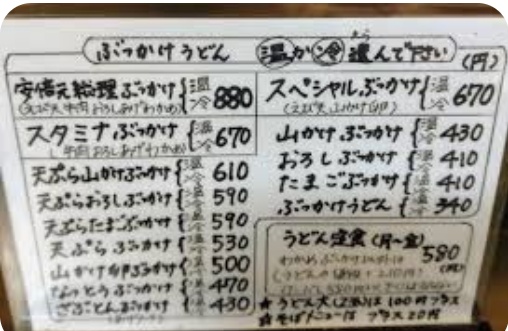 ぶっかけうどん 温か冷 選んで下さい (円)
安倍元総理ぶっかけ 温 冷 880
スタミナぶっかけ 温 冷 670
天ぷら山かけぶっかけ 温 冷 610
天ぷらおろしぶっかけ 温 冷 590
天ぷらたまごぶっかけ 温 冷 590
天ぷらぶっかけ 温 冷 530
山かけ卵ぶっかけ 温 冷 500
なっとうぶっかけ 温 冷 470
ざぶとんぶっかけ 温 冷 430
スペシャルぶっかけ 温 冷 670
(えび天山かけ卵)
山かけぶっかけ 温 冷 430
おろしぶっかけ 温 冷 410
たまごぶっかけ 温 冷 410
ぶっかけうどん 温 冷 340
うどん定食(月〜金) 580
(円)
★うどん大(2玉)は100円プラス
★そばメニューは プラス20円